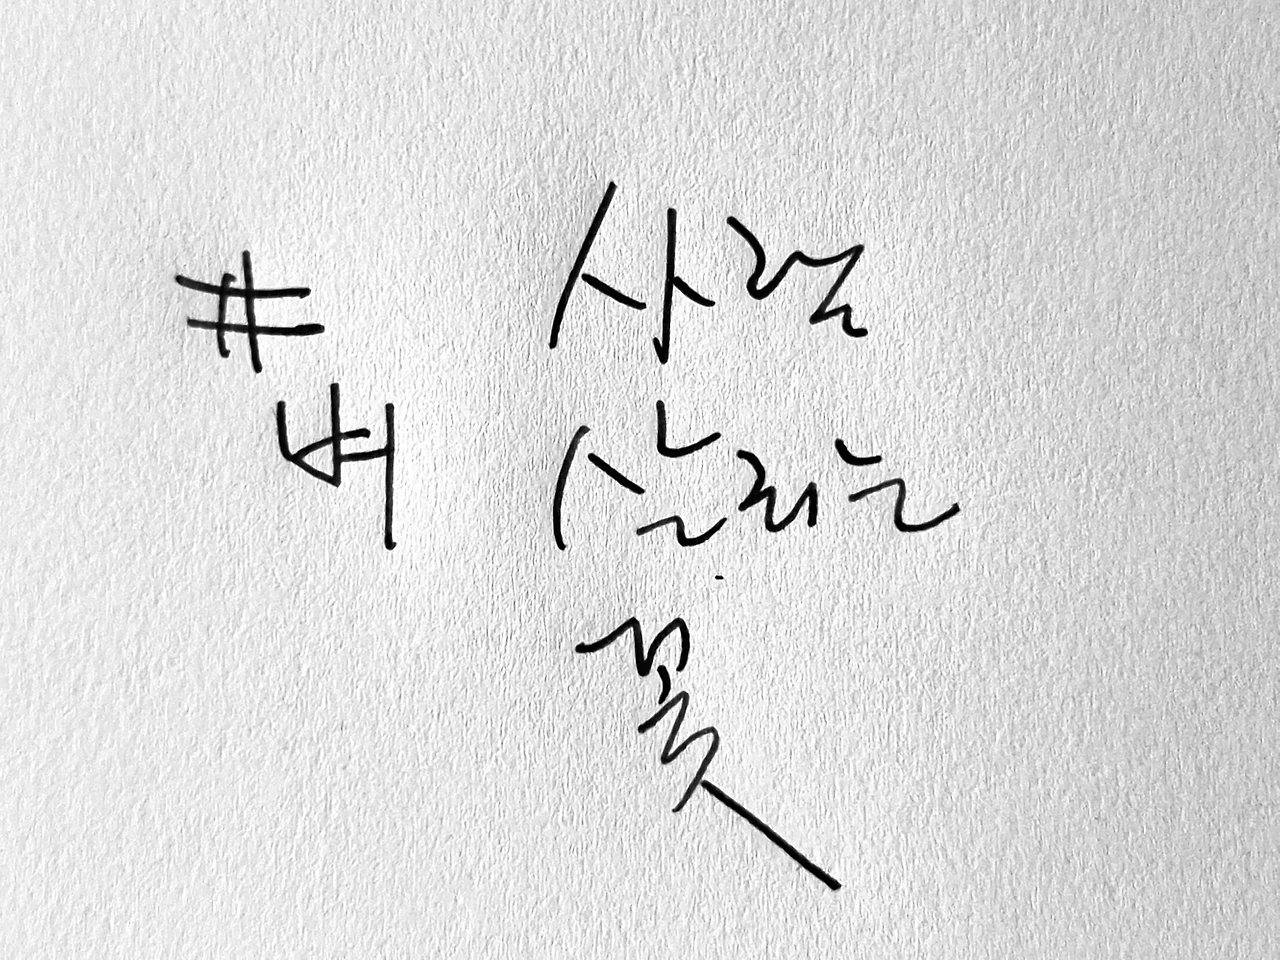 사람
살리는
꽃